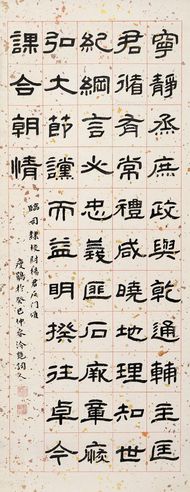 寧靜烝庶政與乾通輔主匡
君循有常禮咸曉地理知世
紀綱言必忠義匪石厥章恢
弘大節讜而益明揆往卓今
謀合朝情
臨司隸校尉楊君石门頌
於癸巳仲春